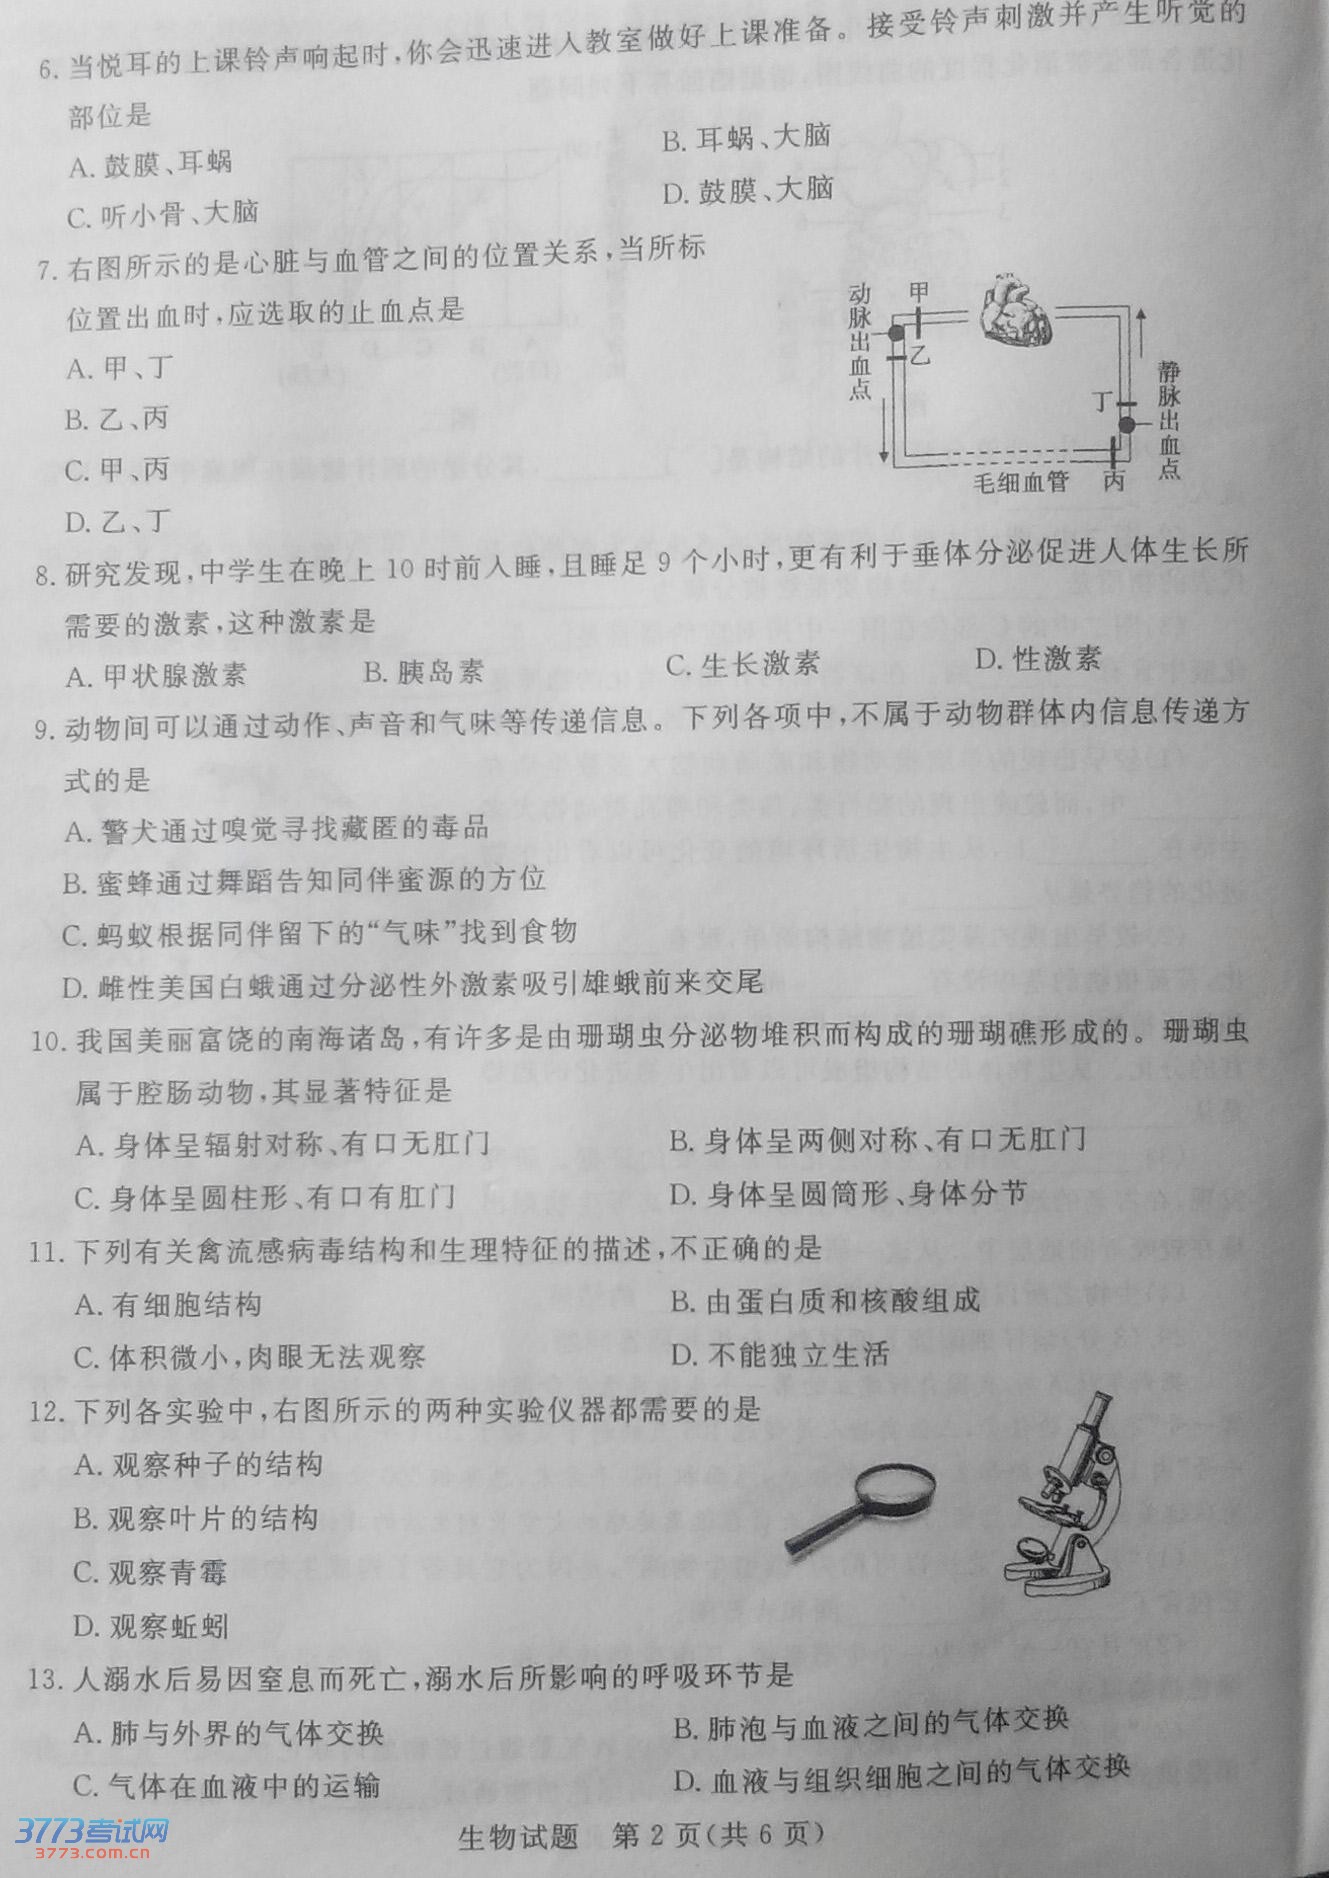 6. 当悦耳的上课铃声响起时,你会迅速进入教室做好上课准备。接受铃声刺激并产生听觉的
部位是
A. 鼓膜、耳蜗
B. 耳蜗、大脑
C. 听小骨、大脑
D. 鼓膜、大脑
7. 右图所示的是心脏与血管之间的位置关系,当所标
位置出血时,应选取的止血点是
A. 甲、丁
B. 乙、丙
C. 甲、丙
D. 乙、丁
动脉出血点
甲
乙
丁
静脉出血点
毛细血管
丙
8. 研究发现,中学生在晚上 10 时前入睡,且睡足 9 个小时,更有利于垂体分泌促进人体生长所
需要的激素,这种激素是
A. 甲状腺激素 B. 胰岛素 C. 生长激素 D. 性激素
9. 动物间可以通过动作、声音和气味等传递信息。下列各项中,不属于动物群体内信息传递方
式的是
A. 警犬通过嗅觉寻找藏匿的毒品
B. 蜜蜂通过舞蹈告知同伴蜜源的方位
C. 蚂蚁根据同伴留下的“气味”找到食物
D. 雌性美国白蛾通过分泌性外激素吸引雄蛾前来交尾
10. 我国美丽富饶的南海诸岛,有许多是由珊瑚虫分泌物堆积而构成的珊瑚礁形成的。珊瑚虫
属于腔肠动物,其显著特征是
A. 身体呈辐射对称、有口无肛门
B. 身体呈两侧对称、有口无肛门
C. 身体呈圆柱形、有口有肛门
D. 身体呈圆筒形、身体分节
11. 下列有关禽流感病毒结构和生理特征的描述,不正确的是
A. 有细胞结构
B. 由蛋白质和核酸组成
C. 体积微小,肉眼无法观察
D. 不能独立生活
12. 下列各实验中,右图所示的两种实验仪器都需要的是
A. 观察种子的结构
B. 观察叶片的结构
C. 观察青霉
D. 观察蚯蚓
13. 人溺水后易因窒息而死亡,溺水后所影响的呼吸环节是
A. 肺与外界的气体交换
B. 肺泡与血液之间的气体交换
C. 气体在血液中的运输
D. 血液与组织细胞之间的气体交换
生物试题 第 2 页(共 6 页)
3773考试网
3773.com.cn